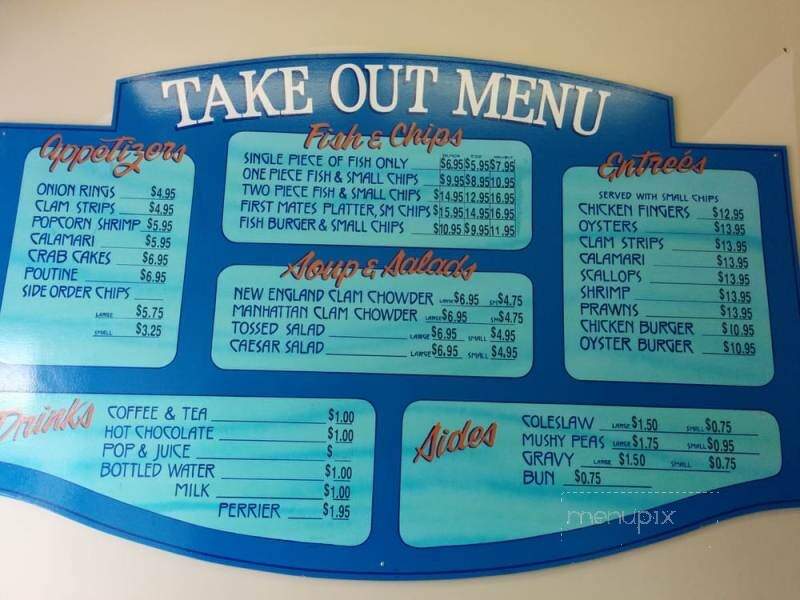 TAKE OUT MENU
Appetizers
ONION RINGS $4.95
CLAM STRIPS $4.95
POPCORN SHRIMP $5.95
CALAMARI $5.95
CRAB CAKES $6.95
POUTINE $6.95
SIDE ORDER CHIPS
LARGE $5.75
SMALL $3.25
Fish & Chips
SINGLE PIECE OF FISH ONLY $6.95 $5.95 $7.95
ONE PIECE FISH & SMALL CHIPS $9.95 $8.95 10.95
TWO PIECE FISH & SMALL CHIPS $14.95 12.95 16.95
FIRST MATES PLATTER, SM CHIPS $15.95 14.95 16.95
FISH BURGER & SMALL CHIPS $10.95 $9.95 11.95
Soup & Salads
NEW ENGLAND CLAM CHOWDER LARGE $6.95 SM $4.75
MANHATTAN CLAM CHOWDER LARGE $6.95 SM $4.75
TOSSED SALAD LARGE $6.95 SMALL $4.95
CAESAR SALAD LARGE $6.95 SMALL $4.95
Entrées
SERVED WITH SMALL CHIPS
CHICKEN FINGERS $12.95
OYSTERS $13.95
CLAM STRIPS $13.95
CALAMARI $13.95
SCALLOPS $13.95
SHRIMP $13.95
PRAWNS $13.95
CHICKEN BURGER $10.95
OYSTER BURGER $10.95
Drinks
COFFEE & TEA $1.00
HOT CHOCOLATE $1.00
POP & JUICE $
BOTTLED WATER $1.00
MILK $1.00
PERRIER $1.95
Sides
COLESLAW LARGE $1.50 SMALL $0.75
MUSHY PEAS LARGE $1.75 SMALL $0.95
GRAVY LARGE $1.50 SMALL $0.75
BUN $0.75
menupix